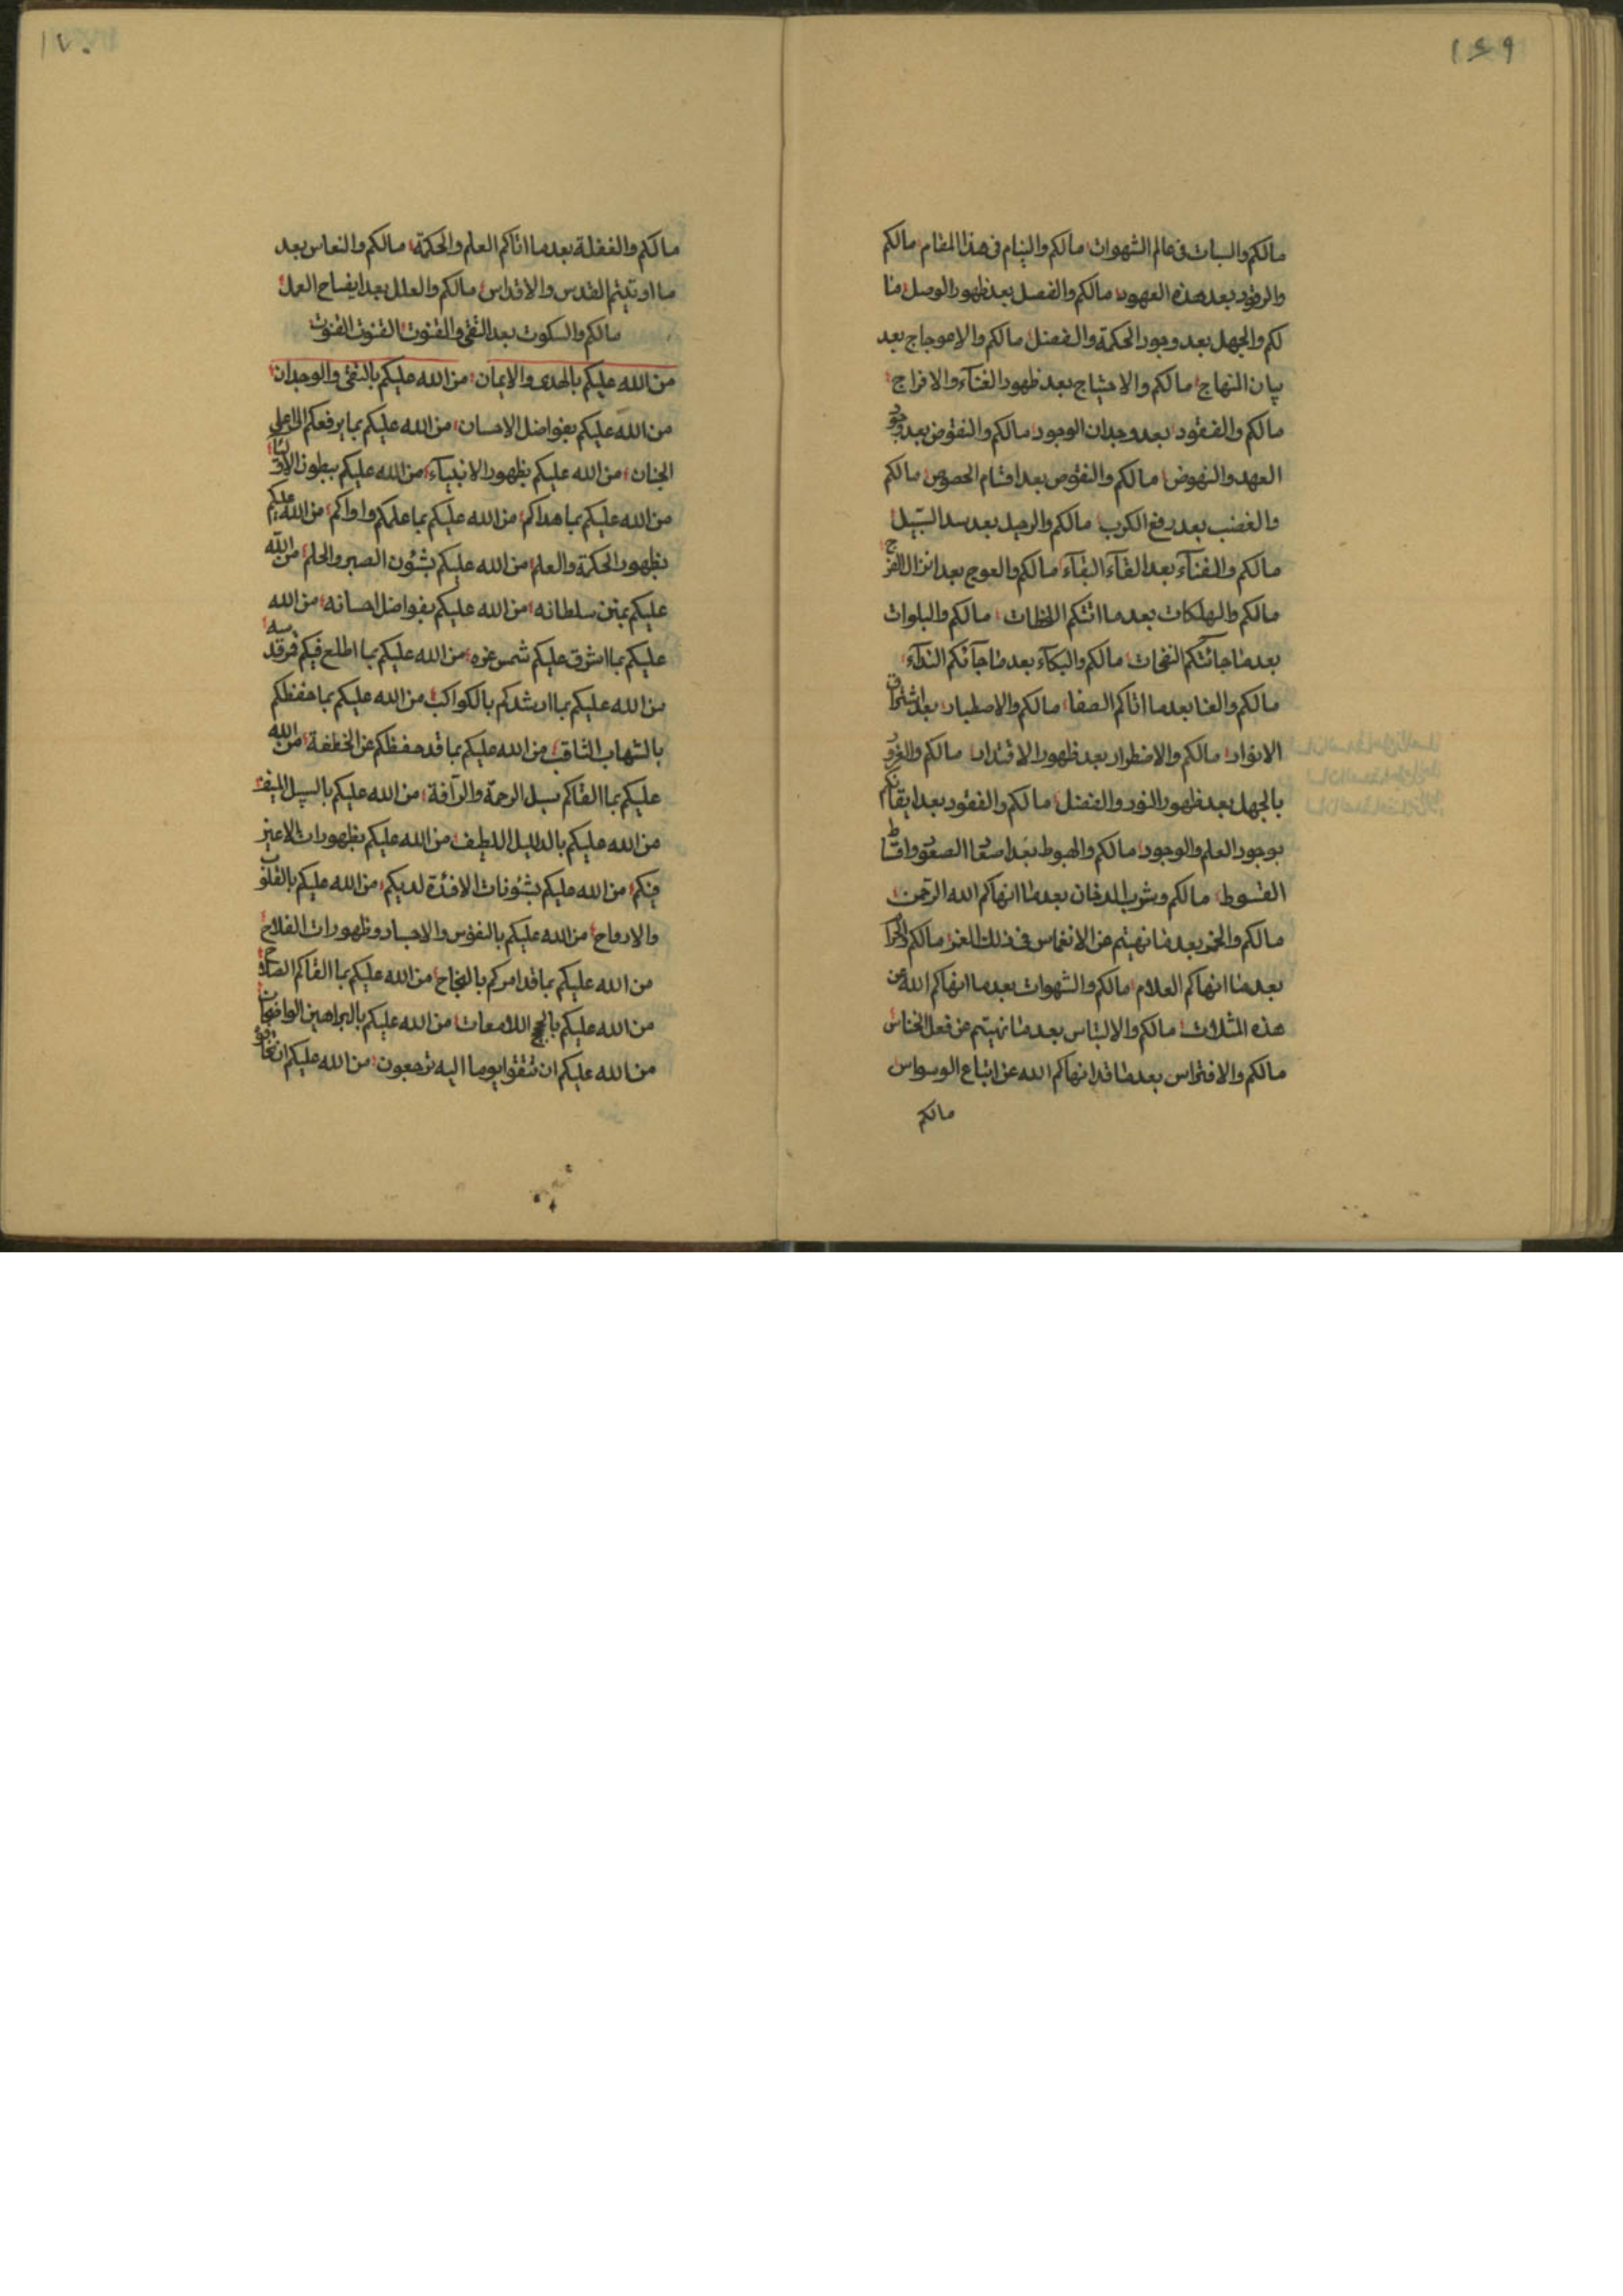 ١٤٩
مالكم والسبات فی عالم الشهوات مالكم والنيام فی هذا المقام مالكم
والرقود بعد هذه العهود مالكم والفصل بعد ظهور الوصل ما
لكم والجهل بعد وجود الحكمة والفضل مالكم والاعوجاج بعد
بيان المنهاج مالكم والاحتياج بعد ظهور الغنآء والافراج
مالكم والفقود بعد وجدان الوجود مالكم والنقوض بعد
العهد والنهوض مالكم والنقوص بعد اقتسام الحصوص مالكم
والغضب بعد رفع الكرب مالكم والرحيل بعد سد السّبيل
مالكم والفنآء بعد القآء البقآء مالكم والعوج بعد انزال الفرج
مالكم والهلكات بعد ما اتتكم اللحظات مالكم والبلوات
بعد ما جائتكم النفحات مالكم والبكآء بعد ما جآئكم الندآء
مالكم والغنا بعد ما اتاكم الصفا مالكم والاصطبار بعد اشراق
الانوار مالكم والاضطرار بعد ظهور الاقتدار مالكم والغرور
بالجهل بعد ظهور النور والفضل مالكم والفقود بعد ايقانكم
بوجود العلم والوجود مالكم والهبوط بعد
القسوط مالكم وشرب الدخان بعد ما انهاكم الله الرحمن
مالكم والخمر بعد ما نهيتم عن الانغماس فی ذلك الغمر مالكم والحرام
بعد ما انهاكم العلام مالكم والشهوات بعد ما انهاكم الله عن
هذه المثلات مالكم والالتباس بعد ما نهيتم عن فعل الخناس
مالكم والافتراس بعد ما قد انهاكم الله عن اتباع الوسواس
مالكم
١٧٠
مالكم والغفلة بعد ما اتاكم العلم والحكمة مالكم والنعاس بعد
ما اوتيتم القدس والاقداس مالكم والعلل بعد العمل
مالكم والسكوت بعد التقی والقنوت القنوت القنوت
من الله عليكم بالهدی والايمان من الله عليكم بالتقی والوجدان
من الله عليكم بفواضل الاحسان من الله عليكم بما يرفعكم الی اعلی
الجنان من الله عليكم بظهور الانبيآء من الله عليكم ببطون
من الله عليكم بما هداكم من الله عليكم بما علمكم واواكم من الله عليكم
بظهور الحكمة والعلم من الله عليكم بشؤن الصبر والحلم من الله
عليكم بمتين سلطانه من الله عليكم بفواضل احسانه من الله
عليكم بما اشرق عليكم شمس عزه من الله عليكم بما اطلع فيكم فرقد
من الله عليكم بما ارشدكم بالكواكب من الله عليكم بما حفظكم
بالشهاب الثاقب من الله عليكم بما قد حفظكم عن الخطفة من الله
عليكم بما القاكم سبل الرحمة والرآفة من الله عليكم بالسبيل المنيف
من الله عليكم بالدليل اللطيف من الله عليكم بظهورات الاعين
فيكم من الله عليكم بشؤنات الافئدة لديكم من الله عليكم بالقلوب
والارواح من الله عليكم بالنفوس والاجساد وظهورات الفلاح
من الله عليكم بما قد امركم بالنجاح من الله عليكم بما القاكم
من الله عليكم بالحجج اللامعات من الله عليكم بالبراهين الواضحات
من الله عليكم ان تتقوا يوما اليه ترجعون من الله عليكم ان